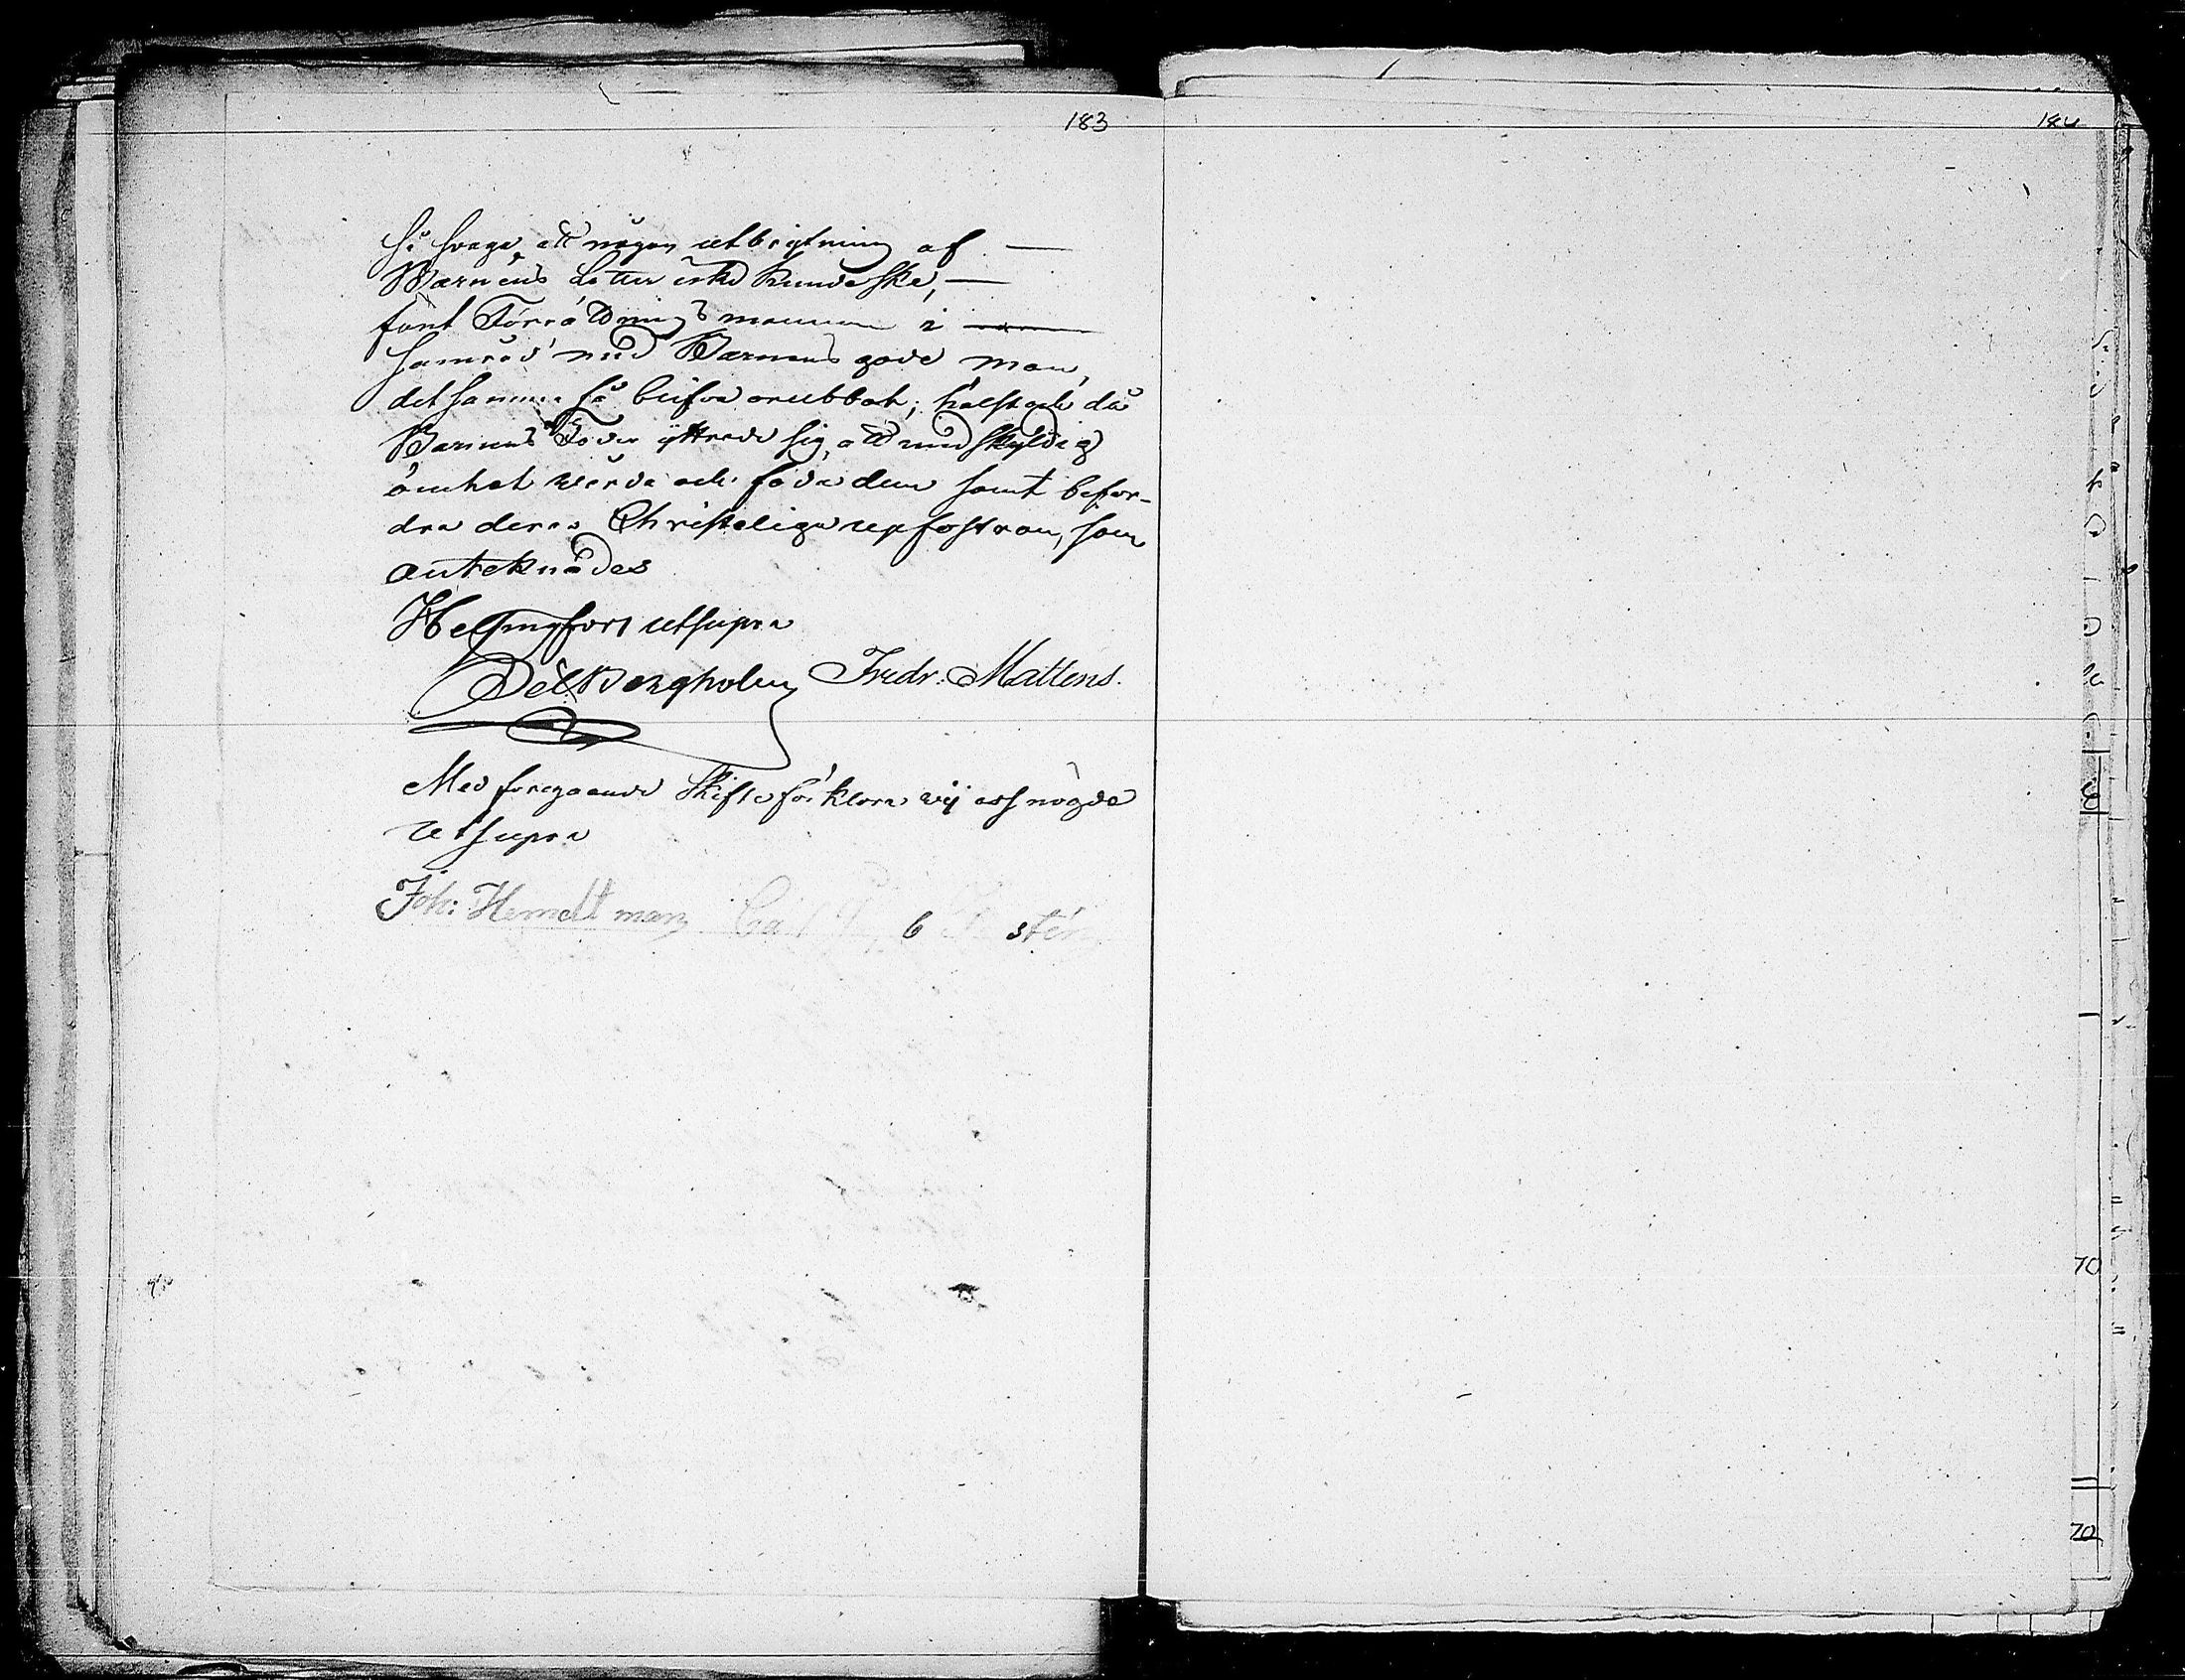 183
184
så svaga att någon utbrytning af
Barnens Lotter icke kunde ske,
fant Förrättningsmannen i
samråd med Barnens gode man,
det samma få blifva orubbat; hälst och då
Barnens Fader yttrade sig, att med skyldig
ömhet vårda och föda dem samt befor-
dra deras Christeliga upfostran, som
antecknades
Helsingfors utsupra
Bergholm Fredr: Mattens.
Med foregaande Skifte förklara wij oss nögde
utsupra
Joh: Hemdtman
70
70